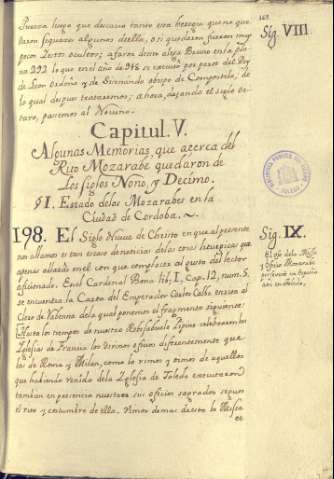 169
Sig. VIII
Puerra luego que destruio tanto esta heregia que no que
daron siquiera algunos de ella, o si quedaron fueron muy
pocos
año 292 lo que en el año de 918 se executo por parte del Rey
de Leon Ordoño y de Sisnando obispo de Compostela, de
lo qual despues trataremos; ahora, dejando el siglo oc-
tavo, pasemos al Noveno.
Capitul. V.
Algunas Memorias, que acerca del
Rito Mozarabe quedaron de
Los siglos Nono, y Decimo.
§ I. Estado de los Mozarabes en la
Ciudad de Cordoba.
198. El Siglo Nueve de Christo en que al presente
nos allamos es tan escaso de noticias de las eras
aficionado. En el Cardenal Bona lib. I, Cap. 12, num. 5.
se encuentra la Carta del Emperador Carlos Calbo escrita al
Clero de Ravena de la qual ponemos el fragmento siguiente:
Hasta los tiempos de nuestro Abuelo Pipino celebraron las
Yglesias de Francia los divinos oficios diferentemente que
las de Roma y Milan, como lo vimos y oimos de aquellos
que habiendo venido de la Yglesia de Toledo executaron
tambien en presencia nuestra sus oficios sagrados segun
el rito y costumbre de ella. Vimos demas de esto la Missa
ce
Sig. IX.
El oficio de la Missa
y Oficio Mozarabe
en España